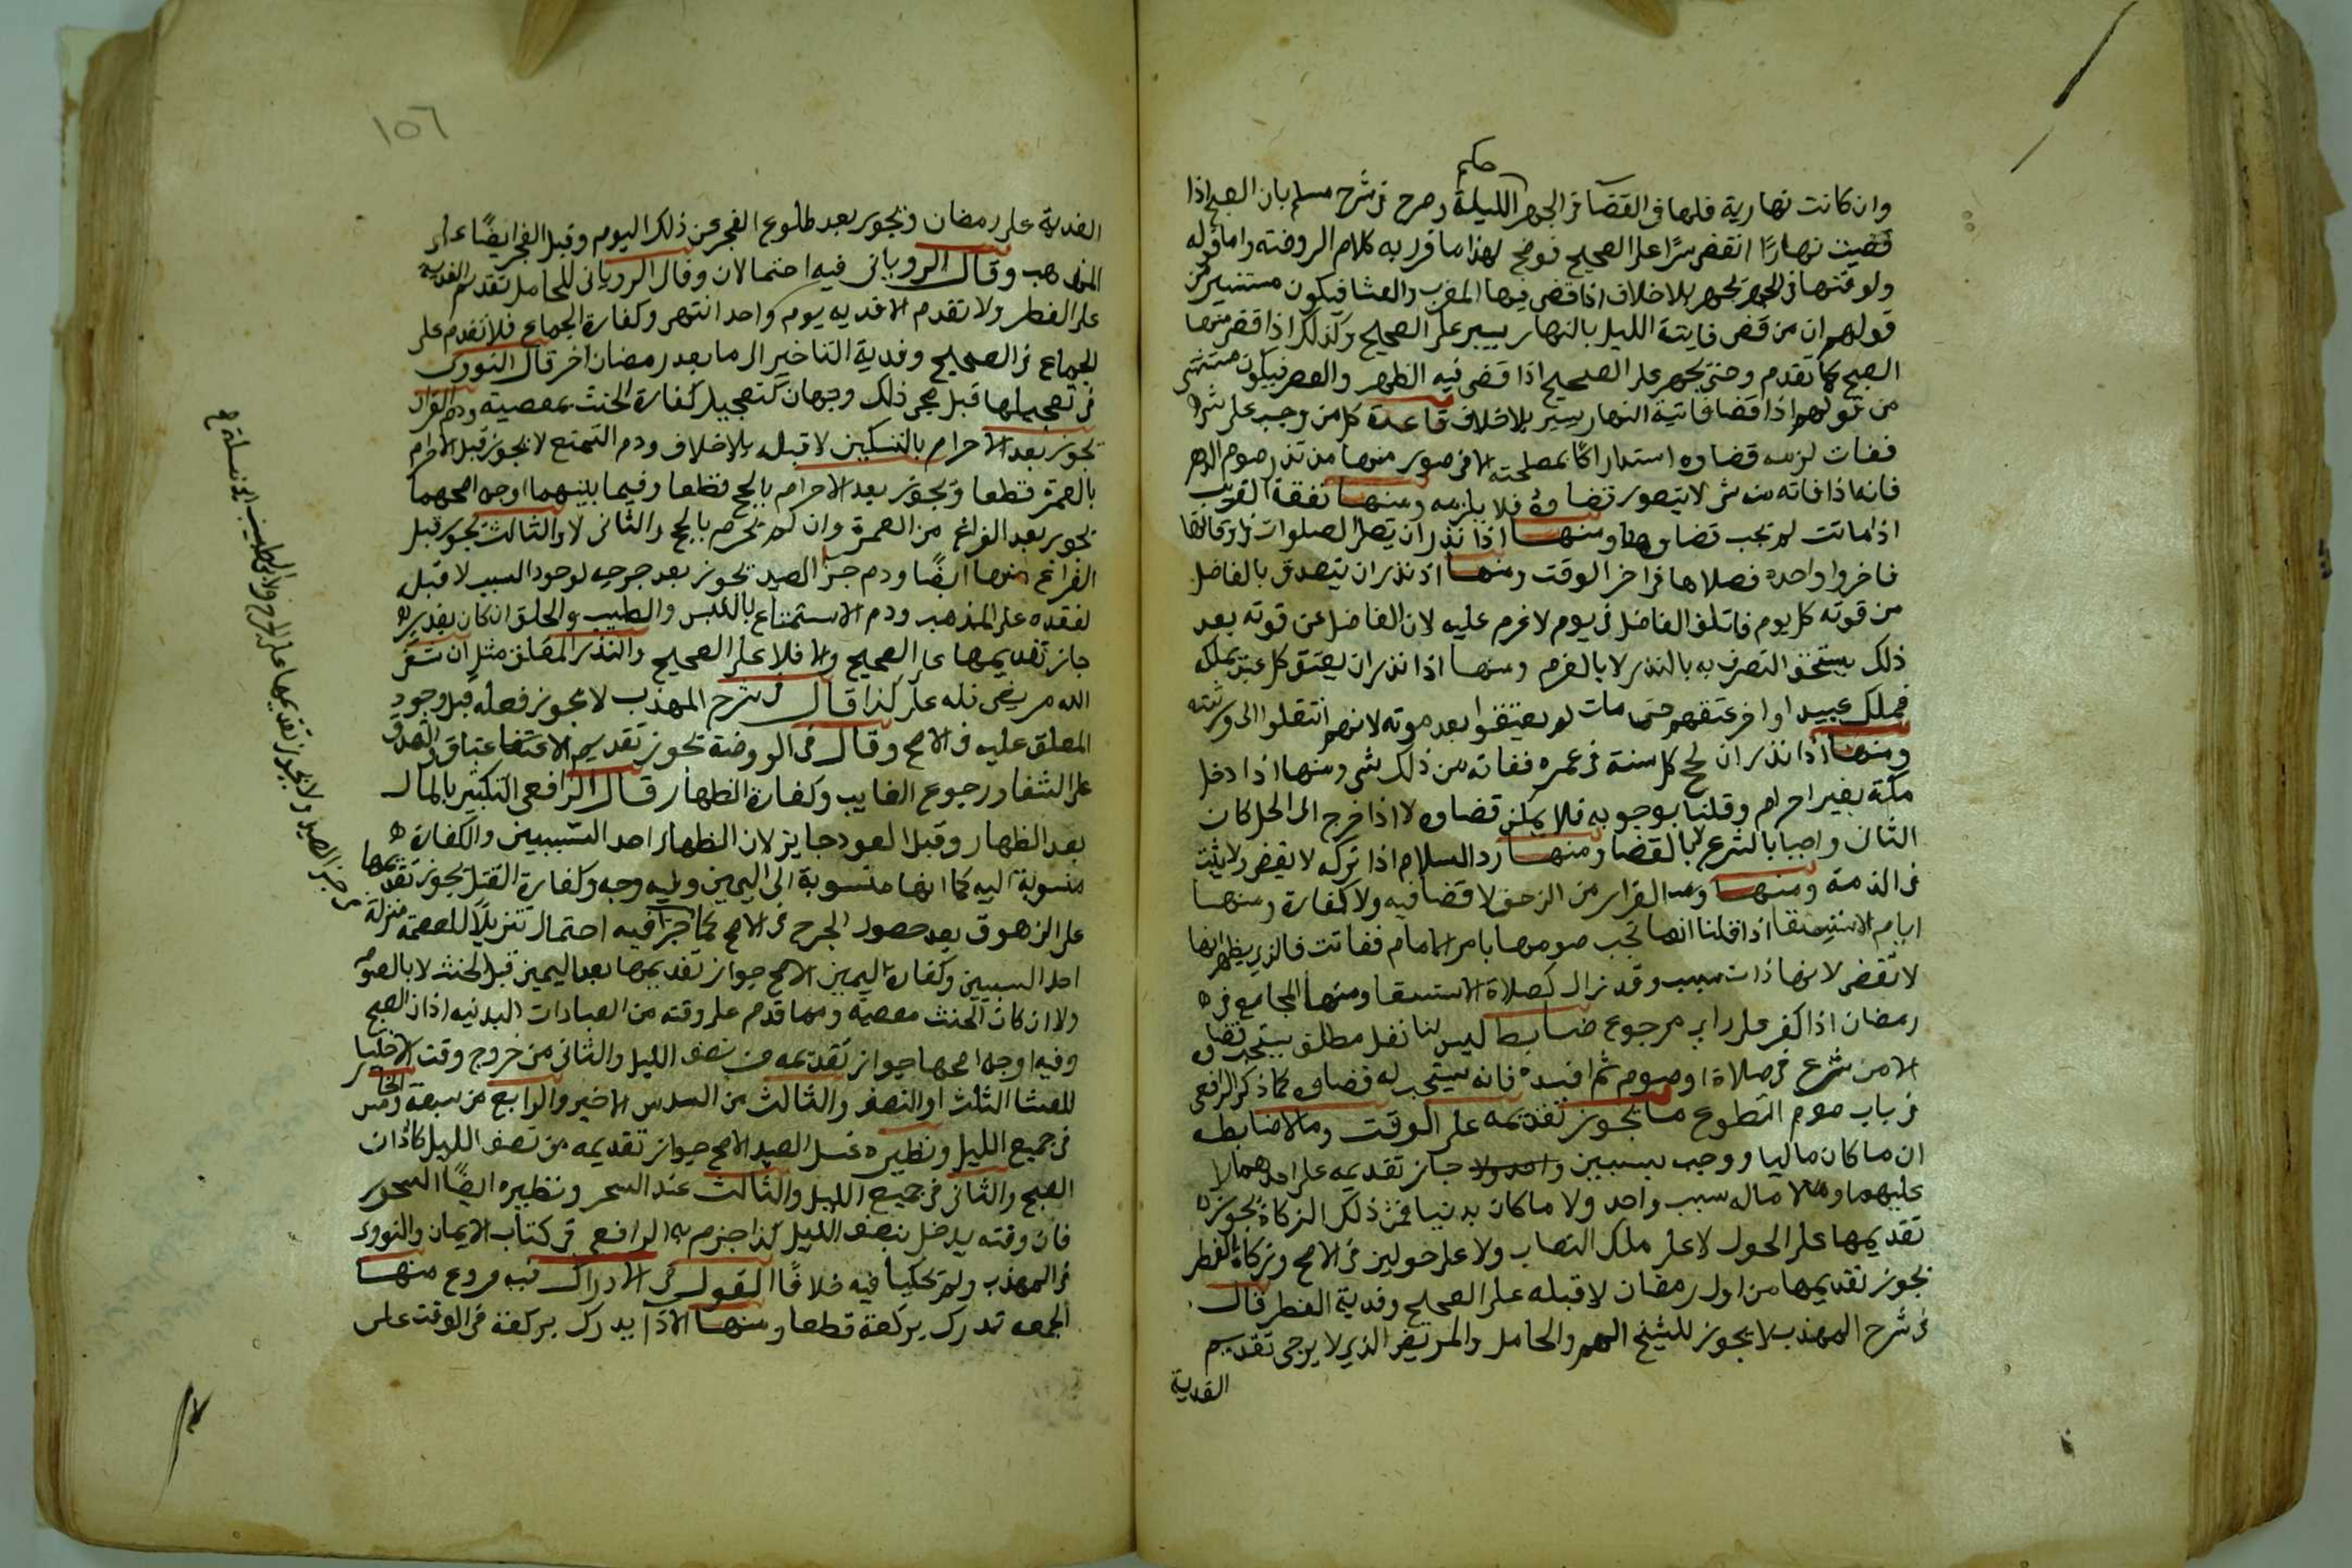 حكم
وان كانت نهارية فلها في القضا في الجهر الليلة وصرح في شرح مسلم بان الصبح اذا
قضيت نهارًا انقضى سرًا على الصحيح فوضح لهذا ما قرر به كلام الروضة واما قوله
ولوقتها في الجهر بجهر بلا خلاف اذا قضى فيها المغرب والعشا فيكون مستثنى من
قولهم ان من قضى فايتة الليل بالنهار يسر على الصحيح وكذلك اذا قضى منها
الصبح كما تقدم وحتى بجهر على الصحيح اذا قضى فيه الظهر والعصر فيكون مستثنى
من قولهم اذا قضا فايتة النهار يسر بلا خلاف قاعدة كل من وجب على شي
ففات لزمه قضاوه استدراكا لمصلحته الا في صور منها من نذر صوم الدهر
فانه اذا فاته منه شي لا يتصور قضاوه فلا يلزمه ومنها نفقة القريب
اذا ماتت لم تجب قضاوها ومنها اذا نذر ان يصلى الصلوات في اوقاتها
فاخر واحده فصلاها في اخر الوقت ومنها اذ نذر ان يتصدق بالفاضل
من قوته كل يوم فاتلف الفاضل في يوم لا غرم عليه لان الفاضل عن قوته بعد
ذلك يستحق التصرف به بالنذر لا بالغرم ومنها اذا نذر ان يعتق كل عبد يملكه
فملك عبيدا واخر عتقهم حتى مات لم يعتقوا بعد موته لانهم انتقلوا الى ورثته
ومنها اذا نذر ان يحج كل سنة في عمره ففاته من ذلك شي ومنها اذا دخل
مكة بغير احرام وقلنا بوجوبه فلا يمكن قضاوه لا اذا خرج الى الحل كان
الثاني واجبا بالشرع لا بالقضا ومنها رد السلام اذا تركه لا يقضى ولا يثبت
في الذمة ومنها ومنه الفرار من الزحف لا قضا فيه ولا كفارة ومنها
ايام الاستسقا اذا قلنا انها تجب صومها بامر الامام ففاتت فالذي يظهر انها
لا تقضى لانها ذات سبب وقد زال كصلاة الاستسقا ومنها المجامع في
رمضان اذا كفر على راى مرجوع ضابط ليس لنا نفل مطلق يستحب قضاوه
الا من شرع في صلاة او صوم ثم افسده فانه يستحب له قضاوه كما ذكر الرافعي
في باب صوم التطوع ما يجوز تقديمه على الوقت وما لا ضابطه
ان ما كان ماليا ووجب بسببين واحد ولا جاز تقديمه على احدهما لا
عليهما ولا ماله سبب واحد ولا ما كان بدنيا فمن ذلك الزكاة يجوز
تقديمها على الحول لا على ملك النصاب ولا على حولين في الاصح وزكاة الفطر
يجوز تقديمها من اول رمضان لا قبله على الصحيح وفدية الفطر قال
في شرح المهذب لا يجوز للشيخ الهم والحامل والمريض الذي لا يرجى تقديم
الفدية
١٥٦
الفدية على رمضان ويجوز بعد طلوع الفجر عن ذلك اليوم وقبل الفجر ايضًا على
المذهب وقال الروياني فيه احتمالان وقال الروياني للحامل تقديم الفدية
على الفطر ولا تقدم الا فديه يوم واحد انتهى وكفارة الجماع فلا تقدم على
الجماع في الصحيح وفدية التاخير الى ما بعد رمضان اخر قال النووي
في تعجيلها قبل مجى ذلك وجهان كتعجيل كفارة الحنث بمعصية ودم القران
تجوز بعد الاحرام بالنسكين لا قبله بلا خلاف ودم التمتع لا يجوز قبل الاحرام
بالعمرة قطعا ويجوز بعد الاحرام بالحج قطعا وفيما بينهما اوجه اصحهما
تجوز بعد الفراغ من العمرة وان لم يحرم بالحج والثاني لا والثالث تجوز قبل
الفراغ منها ايضًا ودم جزا الصيد تجوز بعد جرحه لوجود السبب لا قبله
لفقده على المذهب ودم الاستمتاع باللبس والطيب والحلق ان كان بعذر
جاز تقديمها على الصحيح والا فلا على الصحيح والنذر المعلق مثل ان شفى
الله مريضى فلله على كذا قال في شرح المهذب لا يجوز فعله قبل وجود
المعلق عليه في الاصح وقال في الروضة يجوز تقديم الاعتاق والتصدق
على الشفا ورجوع الغايب وكفارة الظهار قال الرافعي التكفير بالمال
بعد الظهار وقبل العود جايز لان الظهار احد السببين والكفارة
منسوبة اليه كما انها منسوبة الى اليمين وفيه وجه وكفارة القتل يجوز تقديمها
على الزهوق بعد حصول الجرح في الاصح كما جزا فيه احتمال تنزيلا للعصمة منزلة
احد السببين وكفارة اليمين الاصح جواز تقديمها بعد اليمين قبل الحنث لا بالصوم
ولا ان كان الحنث معصية ومما قدم على وقته من العبادات البدنيه اذان الصبح
وفيه اوجه اصحها جواز تقديمه من نصف الليل والثاني من خروج وقت الاختيار
للعشا الثلث او النصف والثالث من السدس الاخير والرابع من سبعة والخامس
في جميع الليل ونظيره غسل العيد الاصح جواز تقديمه من نصف الليل كاذان
الصبح والثاني في جميع الليل والثالث عند السحر ونظيره ايضًا السحور
فان وقته يدخل بنصف الليل كذا جزم به الرافعي في كتاب الايمان والنووي
في المهذب ولم تحكيا فيه خلافًا القول في الادراك فيه فروع منها
الجمعه تدرك بركعة قطعا ومنها الاذا يدرك بركعة في الوقت على